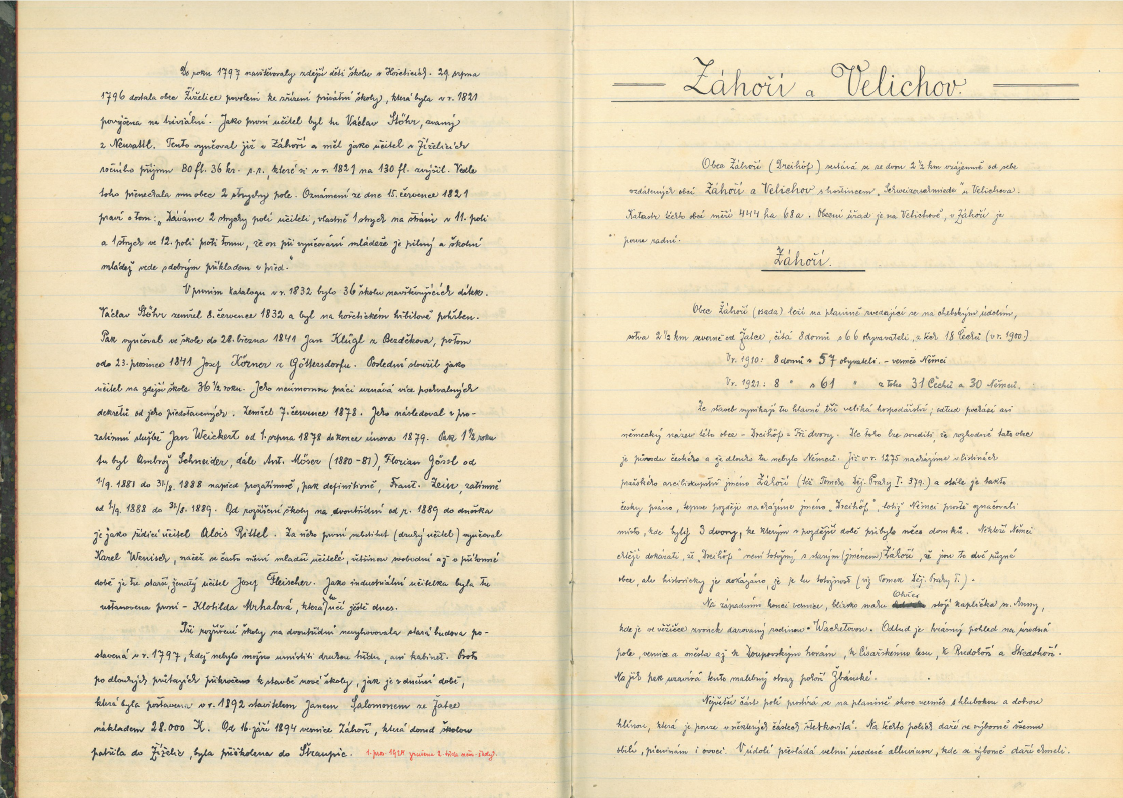 Do roku 1797 navštěvovaly zdejší děti školu v Hořeticích. 29. srpna
1796 dostala obec Žiželice povolení ke zřízení privátní školy, která byla v r. 1821
povýšena na triviální. Jako první učitel byl tu Václav Stöhr, zvaný
z Neusattl. Tento vyučoval již v Záhoří a měl jako učitel v Žiželicích
ročního příjmu 80 fl. 36 kr. r.r., které si v r. 1821 na 130 fl. zvýšil. Vedle
toho přenechala mu obec 2 strychy pole. Oznámení ze dne 15. července 1821
praví o tom: „Dáváme 2 strychy polí učiteli, vlastně 1 strych na stráni v 11. poli
a 1 strych ve 12. poli proti tomu, že on při vyučování mládeže je pilný a školní
mládež vede s dobrým příkladem v před."
V prvním katalogu v r. 1832 bylo 36 školu navštěvujících dítek.
Václav Stöhr zemřel 8. července 1832 a byl na hořetickém hřbitově pohřben.
Pak vyučoval ve škole do 28. března 1841 Jan Klügl z Bezděkova, potom
odo 23. prosince 1841 Josef Körner z Göttersdorfu. Poslední sloužil jako
učitel na zdejší škole 36 ½ roku. Jeho neúmornou práci uznává více pochvalných
dekretů od jeho představených. Zemřel 7. července 1878. Jeho následoval v pro-
zatimní službě Jan Weickert od 1. srpna 1878 do konce února 1879. Pak 1 ½ roku
tu byl Ambrož Schneider, dále Ant. Möser (1880-81), Florian Gössl od
1/9. 1881 do 31/8. 1888 napřed prozatimně, pak definitivně, Frant. Zein, zatimně
od 1/9. 1888 do 31/8. 1889. Od rozšíření školy na dvoutřídní od r. 1889 do dneška
je jako řídící učitel Alois Rittel. Za něho první substitut (druhý učitel) vyučoval
Karel Wenisch, načež se často mění mladší učitelé, většinou svobodní až v přítomné
době je tu starší, ženatý učitel Josef Fleischer. Jako industriální učitelka byla tu
ustanovena první - Klotilda Mrhalová, která tu učí ještě dnes.
Při rozšíření školy na dvoutřídní nevyhovovala stará budova po-
stavená v r. 1797, když nebylo možno umístiti druhou třídu, ani kabinet. Proto
po dlouhých průtazích přikročeno k stavbě nové školy, jak je v dnešní době,
která byla postavena v r. 1892 stavitelem Janem Salomonem ze Žatce
nákladem 28.000 K. Od 16. září 1894 vesnice Záhoří, která dosud školou
patřila do Žiželic, byla přiškolena do Straupic. 1. pros. 1924 zrušena 2. třída něm. školy.
Záhoří a Velichov.
Obec Záhoří (Dreihöf) skládá se ze dvou 2 ½ km vzájemně od sebe
vzdálených obcí Záhoří a Velichov s hostincem „Schweizerschmiede" u Velichova.
Katastr těchto obcí měří 444 ha 68 a. Obecní úřad je na Velichově, v Záhoří je
pouze radní.
Záhoří.
Obec Záhoří (osada) leží na planině svažující se na oharském údolím,
sotva 2 ½ km severně od Žatce, čítá 8 domů s 66 obyvateli, z toho 18 Čechů (v r. 1900.)
V r. 1910: 8 domů s 57 obyvateli. - vesměs Němci
V r. 1921: 8 " s 61 " z toho 31 Čechů a 30 Němců.
Ze staveb vynikají tu hlavně tři veliká hospodářství; odtud pochází asi
německý název této obce - Dreihöf - Tři dvory. Dle toho lze souditi, že rozhodně tato obec
je původu českého a že dlouho tu nebylo Němců. Již v r. 1275 nacházíme v listinách
pražského arcibiskupství jméno Záhoří (též Tomek Děj. Prahy I. 379.) a stále je takto
česky psáno, teprve později nacházíme jméno „Dreihöf", totiž Němci prostě označovali
místo, kde byly 3 dvory, ke kterým v pozdější době přibylo něco domků. Někteří Němci
chtějí dokázati, že „Dreihöf" není totožný s starým (jménem) Záhoří, že jsou to dvě různé
obce, ale historicky je dokázáno, že je tu totožnost (viz Tomek Děj. Prahy I.).
Na západním konci vesnice, blízko svahu Ohře stojí kaplička sv. Anny,
kde je ve věžičce zvonek darovaný rodinou Wachetovou. Odtud je krásný pohled na úrodná
pole, vesnice a města až k Doupovským horám, k Císařskému lesu, k Rudohoří a Středohoří.
Na jih pak uzavírá tento malebný obraz pohoří Žbánské.
Největší část polí prostírá se na planině skoro vesměs s hlubokou a dobrou
hlínou, která je pouze v některých částech štěrkovitá. Na těchto polích daří se výborně všemu
obilí, pícninám i ovoci. V údolí převládá velmi úrodné alluvium, kde se výborně daří chmeli.